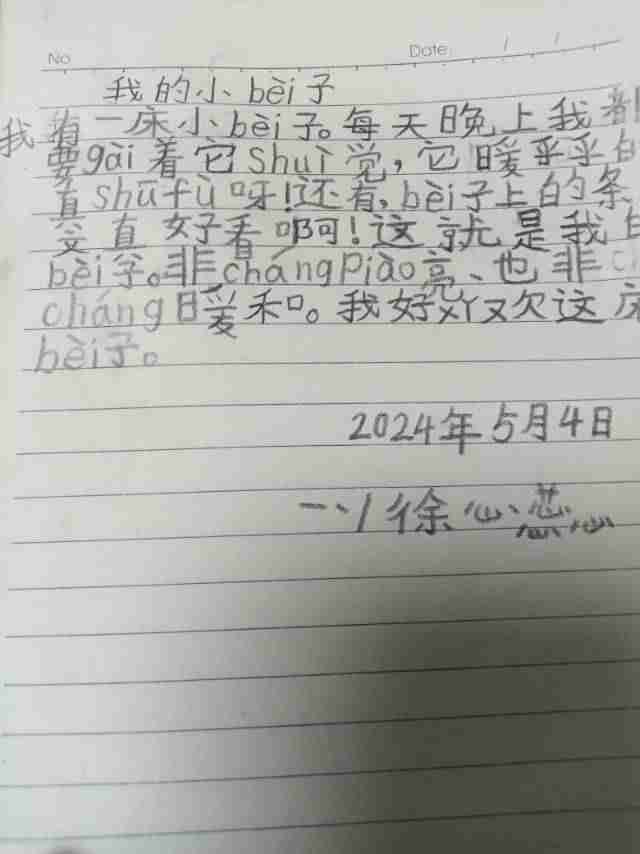 No
Date
我的小bèi子
我有一床小bèi子。每天晚上我都
要gài着它Shuì觉，它暖乎乎白
直Shūfù呀！还有，bèi子上的条
文真好看啊！这就是我白
bèi子。非chángPiào亮、也非c
cháng暖和。我好欢这床
bèi子。
2024年5月4日
徐心蕊